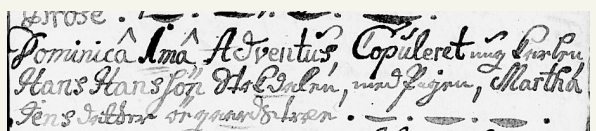 Dominicâ 1mâ Adventus, Copuleret ung karlen
Hans Hanssøn Stokdalen, med Pigen, Martha
Jensdatter